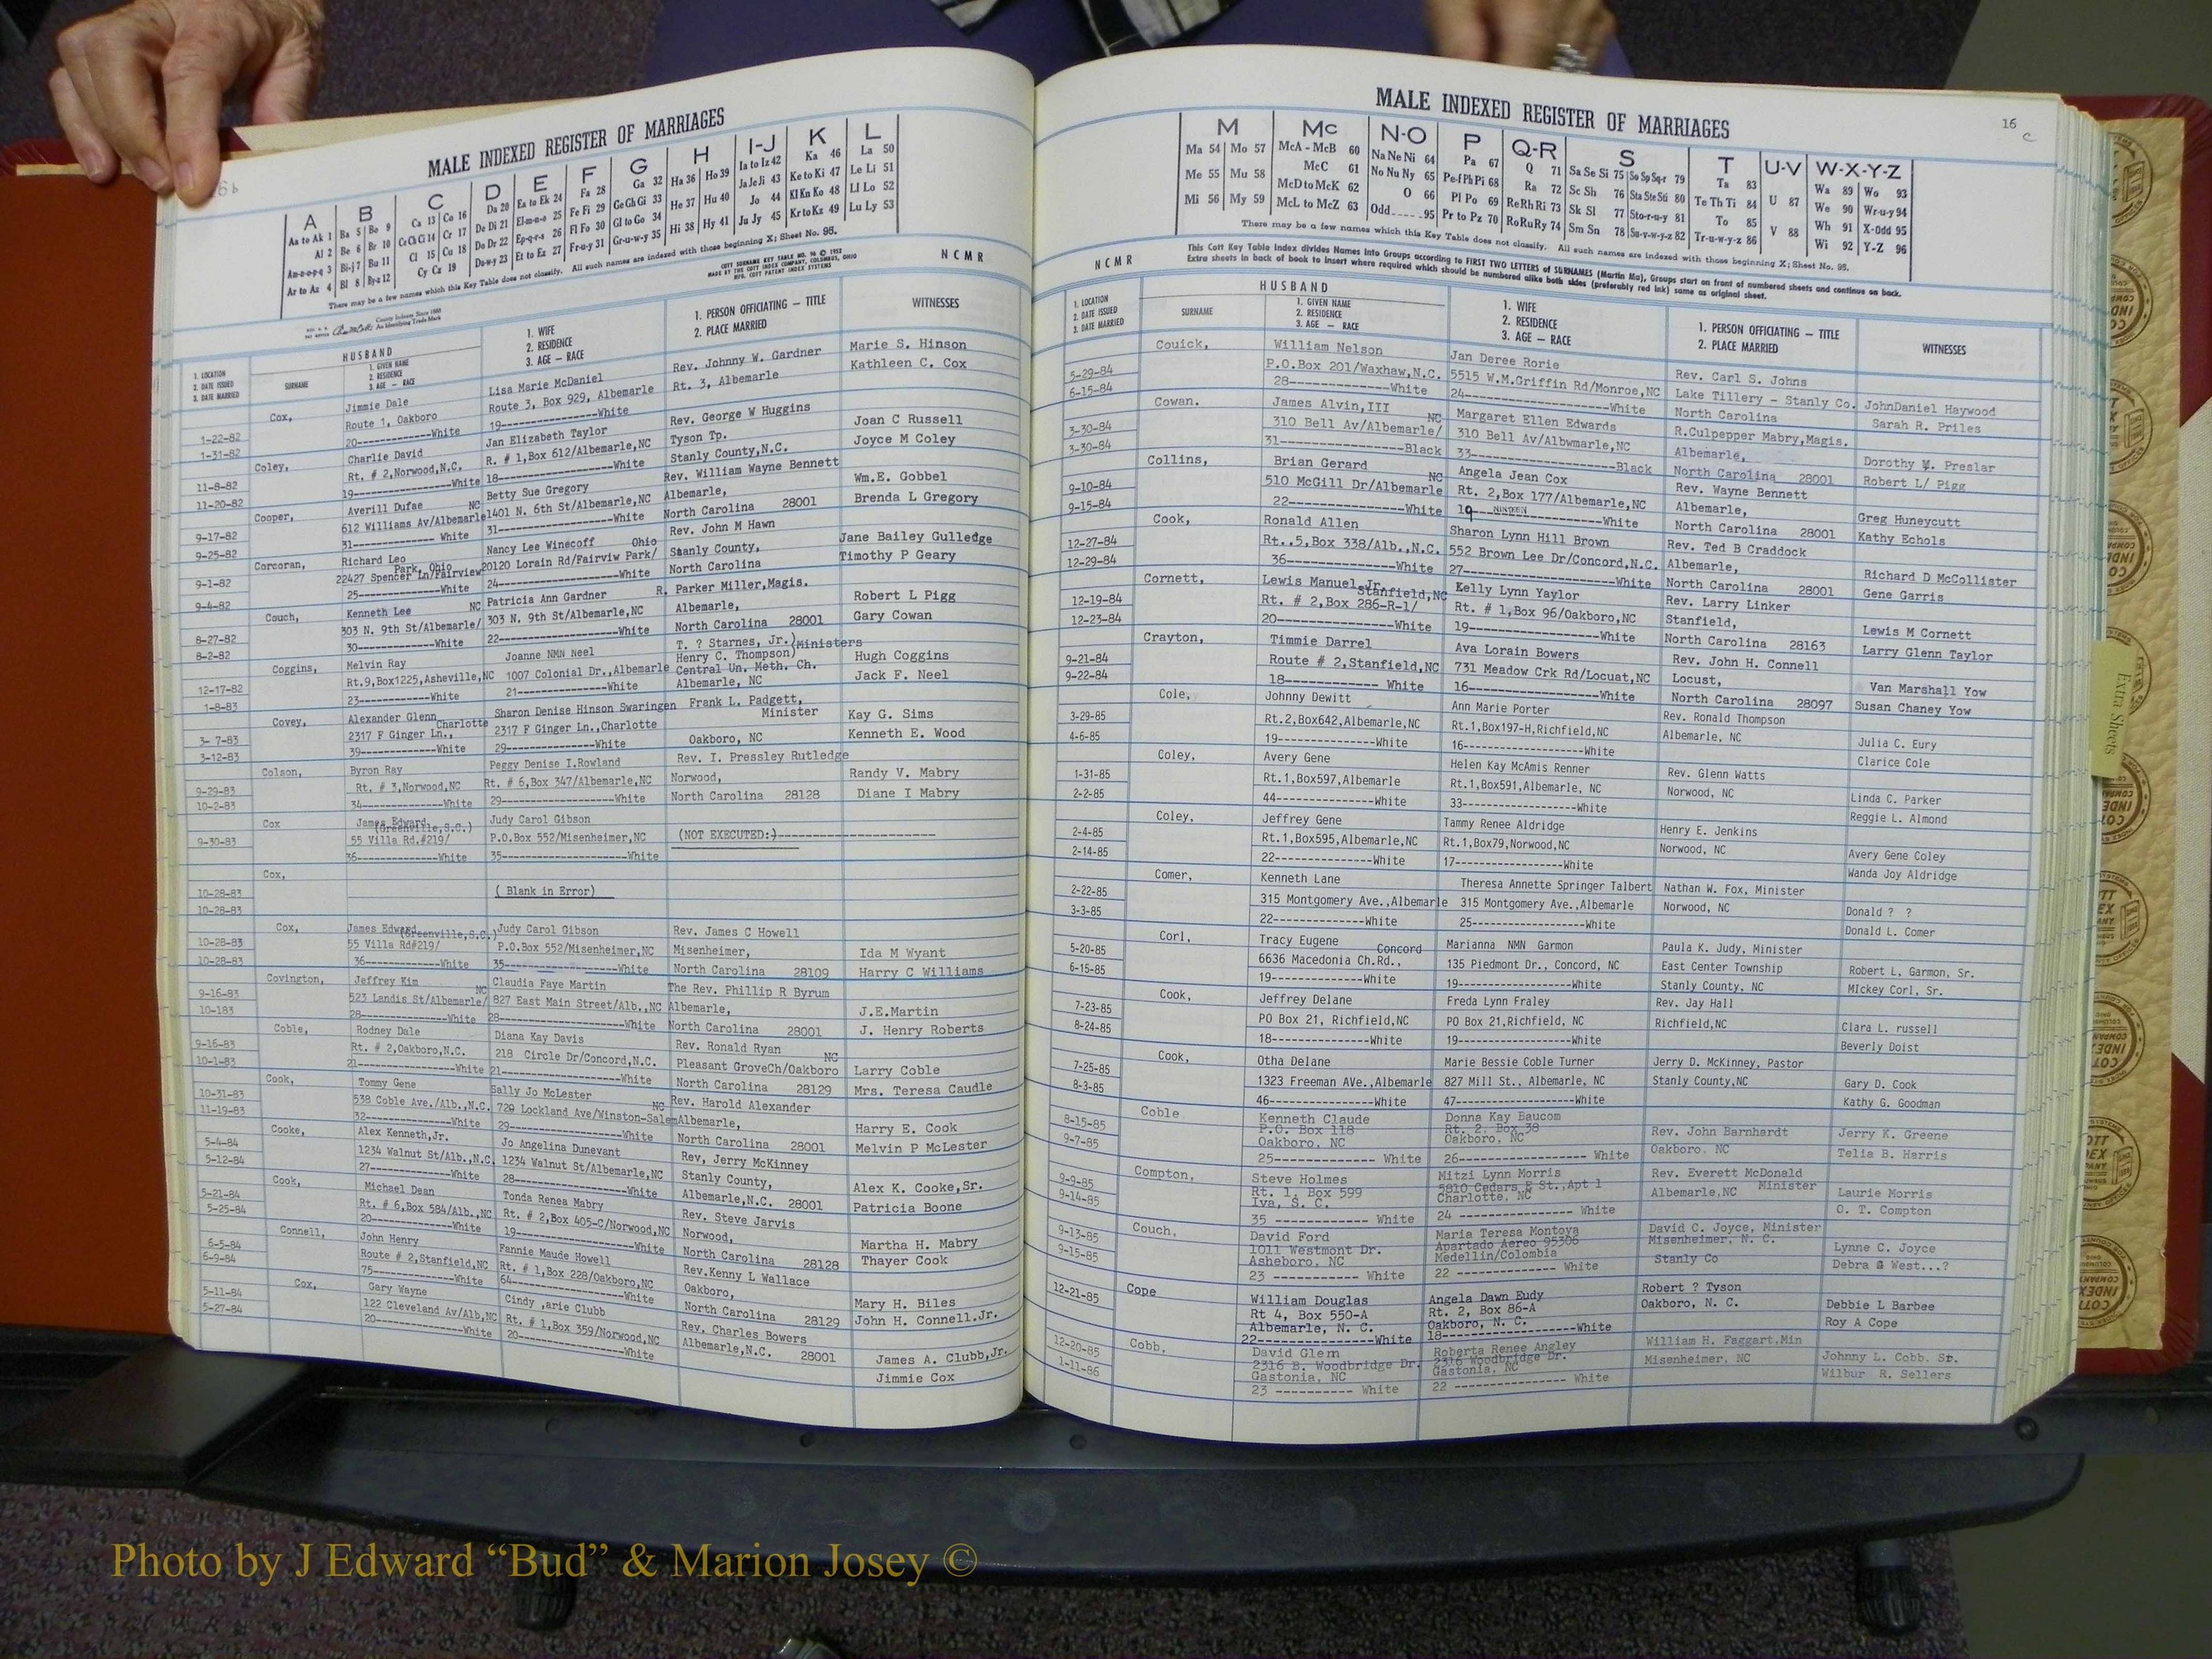 MALE INDEXED REGISTER OF MARRIAGES
6b
A B C D E F G H I-J K L
Aa to Ak 1 Ba 5 Be 9 Ca 13 Co 16 Da 20 Ea to Ek 24 Fa 28 Ga 32 Ha 36 Ho 39 Ia to Iz 42 Ka 46 La 50
Al 2 Be 6 Br 10 Ce Ch Ci 14 Cr 17 De Di 21 El-m-n-o 25 Fe Fi 29 Ge Gh Gi 33 He 37 Hu 40 Ja Je Ji 43 Ke to Ki 47 Le Li 51
Am-n-o-p-q 3 Bi-j 7 Bu 11 Cl 15 Cu 18 Do Dr 22 Ep-q-r-s 26 Fl Fo 30 Gl to Go 34 Hi 38 Hy 41 Jo 44 Kl Kn Ko 48 Ll Lo 52
Ar to Az 4 Bl 8 By-z 12 Cy Cz 19 Du-w-y 23 Et to Ez 27 Fr-u-y 31 Gr-u-w-y 35 Ju Jy 45 Kr to Kz 49 Lu Ly 53
There may be a few names which this Key Table does not classify. All such names are indexed with those beginning X; Sheet No. 95.
COTT SURNAME KEY TABLE NO. 96 © 1952
MADE BY THE COTT INDEX COMPANY, COLUMBUS, OHIO
MFG. COTT PATENT INDEX SYSTEMS
NCMR
County Indexes Since 1888
An Identifying Trade Mark
1. LOCATION
2. DATE ISSUED
3. DATE MARRIED
HUSBAND
SURNAME
1. GIVEN NAME
2. RESIDENCE
3. AGE — RACE
1. WIFE
2. RESIDENCE
3. AGE — RACE
1. PERSON OFFICIATING — TITLE
2. PLACE MARRIED
WITNESSES
Cox, Jimmie Dale Lisa Marie McDaniel Rev. Johnny W. Gardner Marie S. Hinson
1-22-82 Route 1, Oakboro Route 3, Box 929, Albemarle Rt. 3, Albemarle Kathleen C. Cox
1-31-82 20-------------White 19-------------White
Coley, Charlie David Jan Elizabeth Taylor Rev. George W Huggins Joan C Russell
11-8-82 Rt. # 2,Norwood,N.C. R. # 1,Box 612/Albemarle,NC Tyson Tp. Joyce M Coley
11-20-82 19-------------White 18-------------White Stanly County,N.C.
Cooper, Averill Dufae NC Betty Sue Gregory Rev. William Wayne Bennett Wm.E. Gobbel
9-17-82 612 Williams Av/Albemarle 1401 N. 6th St/Albemarle,NC Albemarle, Brenda L Gregory
9-25-82 31------------- White 31-------------White North Carolina 28001
Corcoran, Richard Leo Nancy Lee Winecoff Ohio Rev. John M Hawn Jane Bailey Gulledge
9-1-82 22427 Spencer Ln/Fairview Park, Ohio 20120 Lorain Rd/Fairviw Park/ Stanly County, Timothy P Geary
9-4-82 25-------------White 24-------------White North Carolina
Couch, Kenneth Lee NC Patricia Ann Gardner R. Parker Miller,Magis. Robert L Pigg
8-27-82 303 N. 9th St/Albemarle/ 303 N. 9th St/Albemarle,NC Albemarle, Gary Cowan
8-2-82 30-------------White 22-------------White North Carolina 28001
Coggins, Melvin Ray Joanne NMN Neel T. ? Starnes, Jr.) Ministers Hugh Coggins
12-17-82 Rt.9,Box1225,Asheville,NC 1007 Colonial Dr.,Albemarle Henry C. Thompson) Jack F. Neel
1-8-83 23-------------White 21-------------White Central Un. Meth. Ch.
Albemarle, NC
Covey, Alexander Glenn Sharon Denise Hinson Swaringen Frank L. Padgett, Minister Kay G. Sims
3- 7-83 2317 F Ginger Ln., Charlotte 2317 F Ginger Ln.,Charlotte Kenneth E. Wood
3-12-83 39-------------White 29-------------White Oakboro, NC
Colson, Byron Ray Peggy Denise I.Rowland Rev. I. Pressley Rutledge Randy V. Mabry
9-29-83 Rt. # 3,Norwood,NC Rt. # 6,Box 347/Albemarle,NC Norwood, Diane I Mabry
10-2-83 34-------------White 29-------------White North Carolina 28128
Cox James Edward (Greenville,S.C.) Judy Carol Gibson
9-30-83 55 Villa Rd.#219/ P.O.Box 552/Misenheimer,NC (NOT EXECUTED:)-------------
36-------------White 35-------------White
Cox,
10-28-83 ( Blank in Error)
10-28-83
Cox, James Edward (Greenville,S.C.) Judy Carol Gibson Rev. James C Howell
10-28-83 55 Villa Rd#219/ P.O.Box 552/Misenheimer,NC Misenheimer, Ida M Wyant
10-28-83 36-------------White 35-------------White North Carolina 28109 Harry C Williams
Covington, Jeffrey Kim NC Claudia Faye Martin The Rev. Phillip R Byrum
9-16-83 523 Landis St/Albemarle/ 827 East Main Street/Alb.,NC Albemarle, J.E.Martin
10-183 28-------------White 28-------------White North Carolina 28001 J. Henry Roberts
Coble, Rodney Dale Diana Kay Davis Rev. Ronald Ryan NC
9-16-83 Rt. # 2,Oakboro,N.C. 218 Circle Dr/Concord,N.C. Pleasant GroveCh/Oakboro Larry Coble
10-1-83 21-------------White 21-------------White North Carolina 28129 Mrs. Teresa Caudle
Cook, Tommy Gene Sally Jo McLester NC Rev. Harold Alexander
10-31-83 538 Coble Ave./Alb.,N.C. 729 Lockland Ave/Winston-Salem Albemarle, Harry E. Cook
11-19-83 32-------------White 29-------------White North Carolina 28001 Melvin P McLester
Cooke, Alex Kenneth,Jr. Jo Angelina Dunevant Rev, Jerry McKinney
5-4-84 1234 Walnut St/Alb.,N.C. 1234 Walnut St/Albemarle,NC Stanly County, Alex K. Cooke,Sr.
5-12-84 27-------------White 28-------------White Albemarle,N.C. 28001 Patricia Boone
Cook, Michael Dean Tonda Renea Mabry Rev. Steve Jarvis
5-21-84 Rt. # 6,Box 584/Alb.,NC Rt. # 2,Box 405-C/Norwood,NC Norwood, Martha H. Mabry
5-25-84 20-------------White 19-------------White North Carolina 28128 Thayer Cook
Connell, John Henry Fannie Maude Howell Rev.Kenny L Wallace
6-5-84 Route # 2,Stanfield,NC Rt. # 1,Box 228/Oakboro,NC Oakboro, Mary H. Biles
6-9-84 75-------------White 64-------------White North Carolina 28129 John H. Connell.Jr.
Cox, Gary Wayne Cindy ,arie Clubb Rev. Charles Bowers
5-11-84 122 Cleveland Av/Alb,NC Rt. # 1,Box 359/Norwood,NC Albemarle,N.C. 28001 James A. Clubb,Jr.
5-27-84 20-------------White 20-------------White Jimmie Cox
MALE INDEXED REGISTER OF MARRIAGES
16
C
M Mc N-O P Q-R S T U-V W-X-Y-Z
Ma 54 Mo 57 McA - McB 60 Na Ne Ni 64 Pa 67 Q 71 Sa Se Si 75 So Sp Sq-r 79 Ta 83 U 87 Wa 89 Wo 93
Me 55 Mu 58 McC 61 No Nu Ny 65 Pe-f Ph Pi 68 Ra 72 Sc Sh 76 Sta Ste Sti 80 Te Th Ti 84 We 90 Wr-u-y 94
Mi 56 My 59 McD to McK 62 O 66 Pl Po 69 Re Rh Ri 73 Sk Sl 77 Sto-r-u-y 81 To 85 V 88 Wh 91 X-Odd 95
McL to McZ 63 Odd.....95 Pr to Pz 70 Ro Ru Ry 74 Sm Sn 78 Su-v-w-y-z 82 Tr-u-w-y-z 86 Wi 92 Y-Z 96
There may be a few names which this Key Table does not classify. All such names are indexed with those beginning X; Sheet No. 95.
This Cott Key Table Index divides Names into Groups according to FIRST TWO LETTERS of SURNAMES (Martin Ma), Groups start on front of numbered sheets and continue on back.
Extra sheets in back of book to insert where required which should be numbered alike both sides (preferably red ink) same as original sheet.
NCMR
1. LOCATION
2. DATE ISSUED
3. DATE MARRIED
HUSBAND
SURNAME
1. GIVEN NAME
2. RESIDENCE
3. AGE — RACE
1. WIFE
2. RESIDENCE
3. AGE — RACE
1. PERSON OFFICIATING — TITLE
2. PLACE MARRIED
WITNESSES
Couick, William Nelson Jan Deree Rorie Rev. Carl S. Johns
5-29-84 P.O.Box 201/Waxhaw,N.C. 5515 W.M.Griffin Rd/Monroe,NC Lake Tillery - Stanly Co. JohnDaniel Haywood
6-15-84 28-------------White 24-------------White North Carolina Sarah R. Priles
Cowan. James Alvin,III NC Margaret Ellen Edwards R.Culpepper Mabry,Magis.
3-30-84 310 Bell Av/Albemarle/ 310 Bell Av/Albwmarle,NC Albemarle, Dorothy M. Preslar
3-30-84 31-------------Black 33-------------Black North Carolina 28001 Robert L/ Pigg
Collins, Brian Gerard NC Angela Jean Cox Rev. Wayne Bennett
9-10-84 510 McGill Dr/Albemarle Rt. 2,Box 177/Albemarle,NC Albemarle, Greg Huneycutt
9-15-84 22-------------White 19-------------White North Carolina 28001 Kathy Echols
Cook, Ronald Allen Sharon Lynn Hill Brown Rev. Ted B Craddock
12-27-84 Rt..5,Box 338/Alb.,N.C. 552 Brown Lee Dr/Concord,N.C. Albemarle, Richard D McCollister
12-29-84 36-------------White 27-------------White North Carolina 28001 Gene Garris
Cornett, Lewis Manuel,Jr. Stanfield,NC Kelly Lynn Yaylor Rev. Larry Linker
12-19-84 Rt. # 2,Box 286-R-1/ Rt. # 1,Box 96/Oakboro,NC Stanfield, Lewis M Cornett
12-23-84 20-------------White 19-------------White North Carolina 28163 Larry Glenn Taylor
Crayton, Timmie Darrel Ava Lorain Bowers Rev. John H. Connell
9-21-84 Route # 2,Stanfield,NC 731 Meadow Crk Rd/Locuat,NC Locust, Van Marshall Yow
9-22-84 18------------- White 16-------------White North Carolina 28097 Susan Chaney Yow
Cole, Johnny Dewitt Ann Marie Porter Rev. Ronald Thompson
3-29-85 Rt.2,Box642,Albemarle,NC Rt.1,Box197-H,Richfield,NC Albemarle, NC Julia C. Eury
4-6-85 19-------------White 16-------------White Clarice Cole
Coley, Avery Gene Helen Kay McAmis Renner Rev. Glenn Watts
1-31-85 Rt.1,Box597,Albemarle Rt.1,Box591,Albemarle, NC Norwood, NC Linda C. Parker
2-2-85 44-------------White 33-------------White Reggie L. Almond
Coley, Jeffrey Gene Tammy Renee Aldridge Henry E. Jenkins
2-4-85 Rt.1,Box595,Albemarle,NC Rt.1,Box79,Norwood,NC Norwood, NC Avery Gene Coley
2-14-85 22-------------White 17-------------White Wanda Joy Aldridge
Comer, Kenneth Lane Theresa Annette Springer Talbert Nathan W. Fox, Minister
2-22-85 315 Montgomery Ave.,Albemarle 315 Montgomery Ave.,Albemarle Norwood, NC Donald ? ?
3-3-85 22-------------White 25-------------White Donald L. Comer
Corl, Tracy Eugene Concord Marianna NMN Garmon Paula K. Judy, Minister
5-20-85 6636 Macedonia Ch.Rd., 135 Piedmont Dr., Concord, NC East Center Township Robert L. Garmon, Sr.
6-15-85 19-------------White 19-------------White Stanly County. NC MIckey Corl, Sr.
Cook, Jeffrey Delane Freda Lynn Fraley Rev. Jay Hall
7-23-85 PO Box 21, Richfield,NC PO Box 21,Richfield, NC Richfield,NC Clara L. russell
8-24-85 18-------------White 19-------------White Beverly Doist
Cook, Otha Delane Marie Bessie Coble Turner Jerry D. McKinney, Pastor
7-25-85 1323 Freeman AVe.,Albemarle 827 Mill St., Albemarle, NC Stanly County,NC Gary D. Cook
8-3-85 46-------------White 47-------------White Kathy G. Goodman
Coble Kenneth Claude Donna Kay Baucom
8-15-85 P.O. Box 118 Rt. 2. Box 38 Rev. John Barnhardt Jerry K. Greene
9-7-85 Oakboro. NC Oakboro, NC Oakboro. NC Telia B. Harris
25------------ White 26------------ White
Compton, Steve Holmes Mitzi Lynn Morris Rev. Everett McDonald
9-9-85 Rt. 1, Box 599 5810 Cedars E St.,Apt 1 Minister Laurie Morris
9-14-85 Iva, S. C. Charlotte, NC Albemarle,NC O. T. Compton
35 ------------ White 24 ------------ White
Couch, David Ford Maria Teresa Montoya David C. Joyce, Minister
9-13-85 1011 Westmont Dr. Apartado Aereo 95306 Misenheimer, N. C. Lynne C. Joyce
9-15-85 Asheboro, NC Medellin/Colombia Stanly Co Debra G West...?
23 ----------- White 22 ----------- White
Cope William Douglas Angela Dawn Eudy Robert ? Tyson
12-21-85 Rt 4, Box 550-A Rt. 2, Box 86-A Oakboro, N. C. Debbie L Barbee
Albemarle, N. C. Oakboro, N. C. Roy A Cope
22-------------White 18-------------White
Cobb, David Glem Roberta Renee Angley William H. Faggart,Min
12-20-85 2316 B. Woodbridge Dr. 2316 Woodbridge Dr. Misenheimer, NC Johnny L. Cobb. Sr.
1-11-86 Gastonia, NC Gastonia, NC Wilbur R. Sellers
23 ---------- White 22 ------------- White
Extra Sheets
Photo by J Edward “Bud” & Marion Josey ©